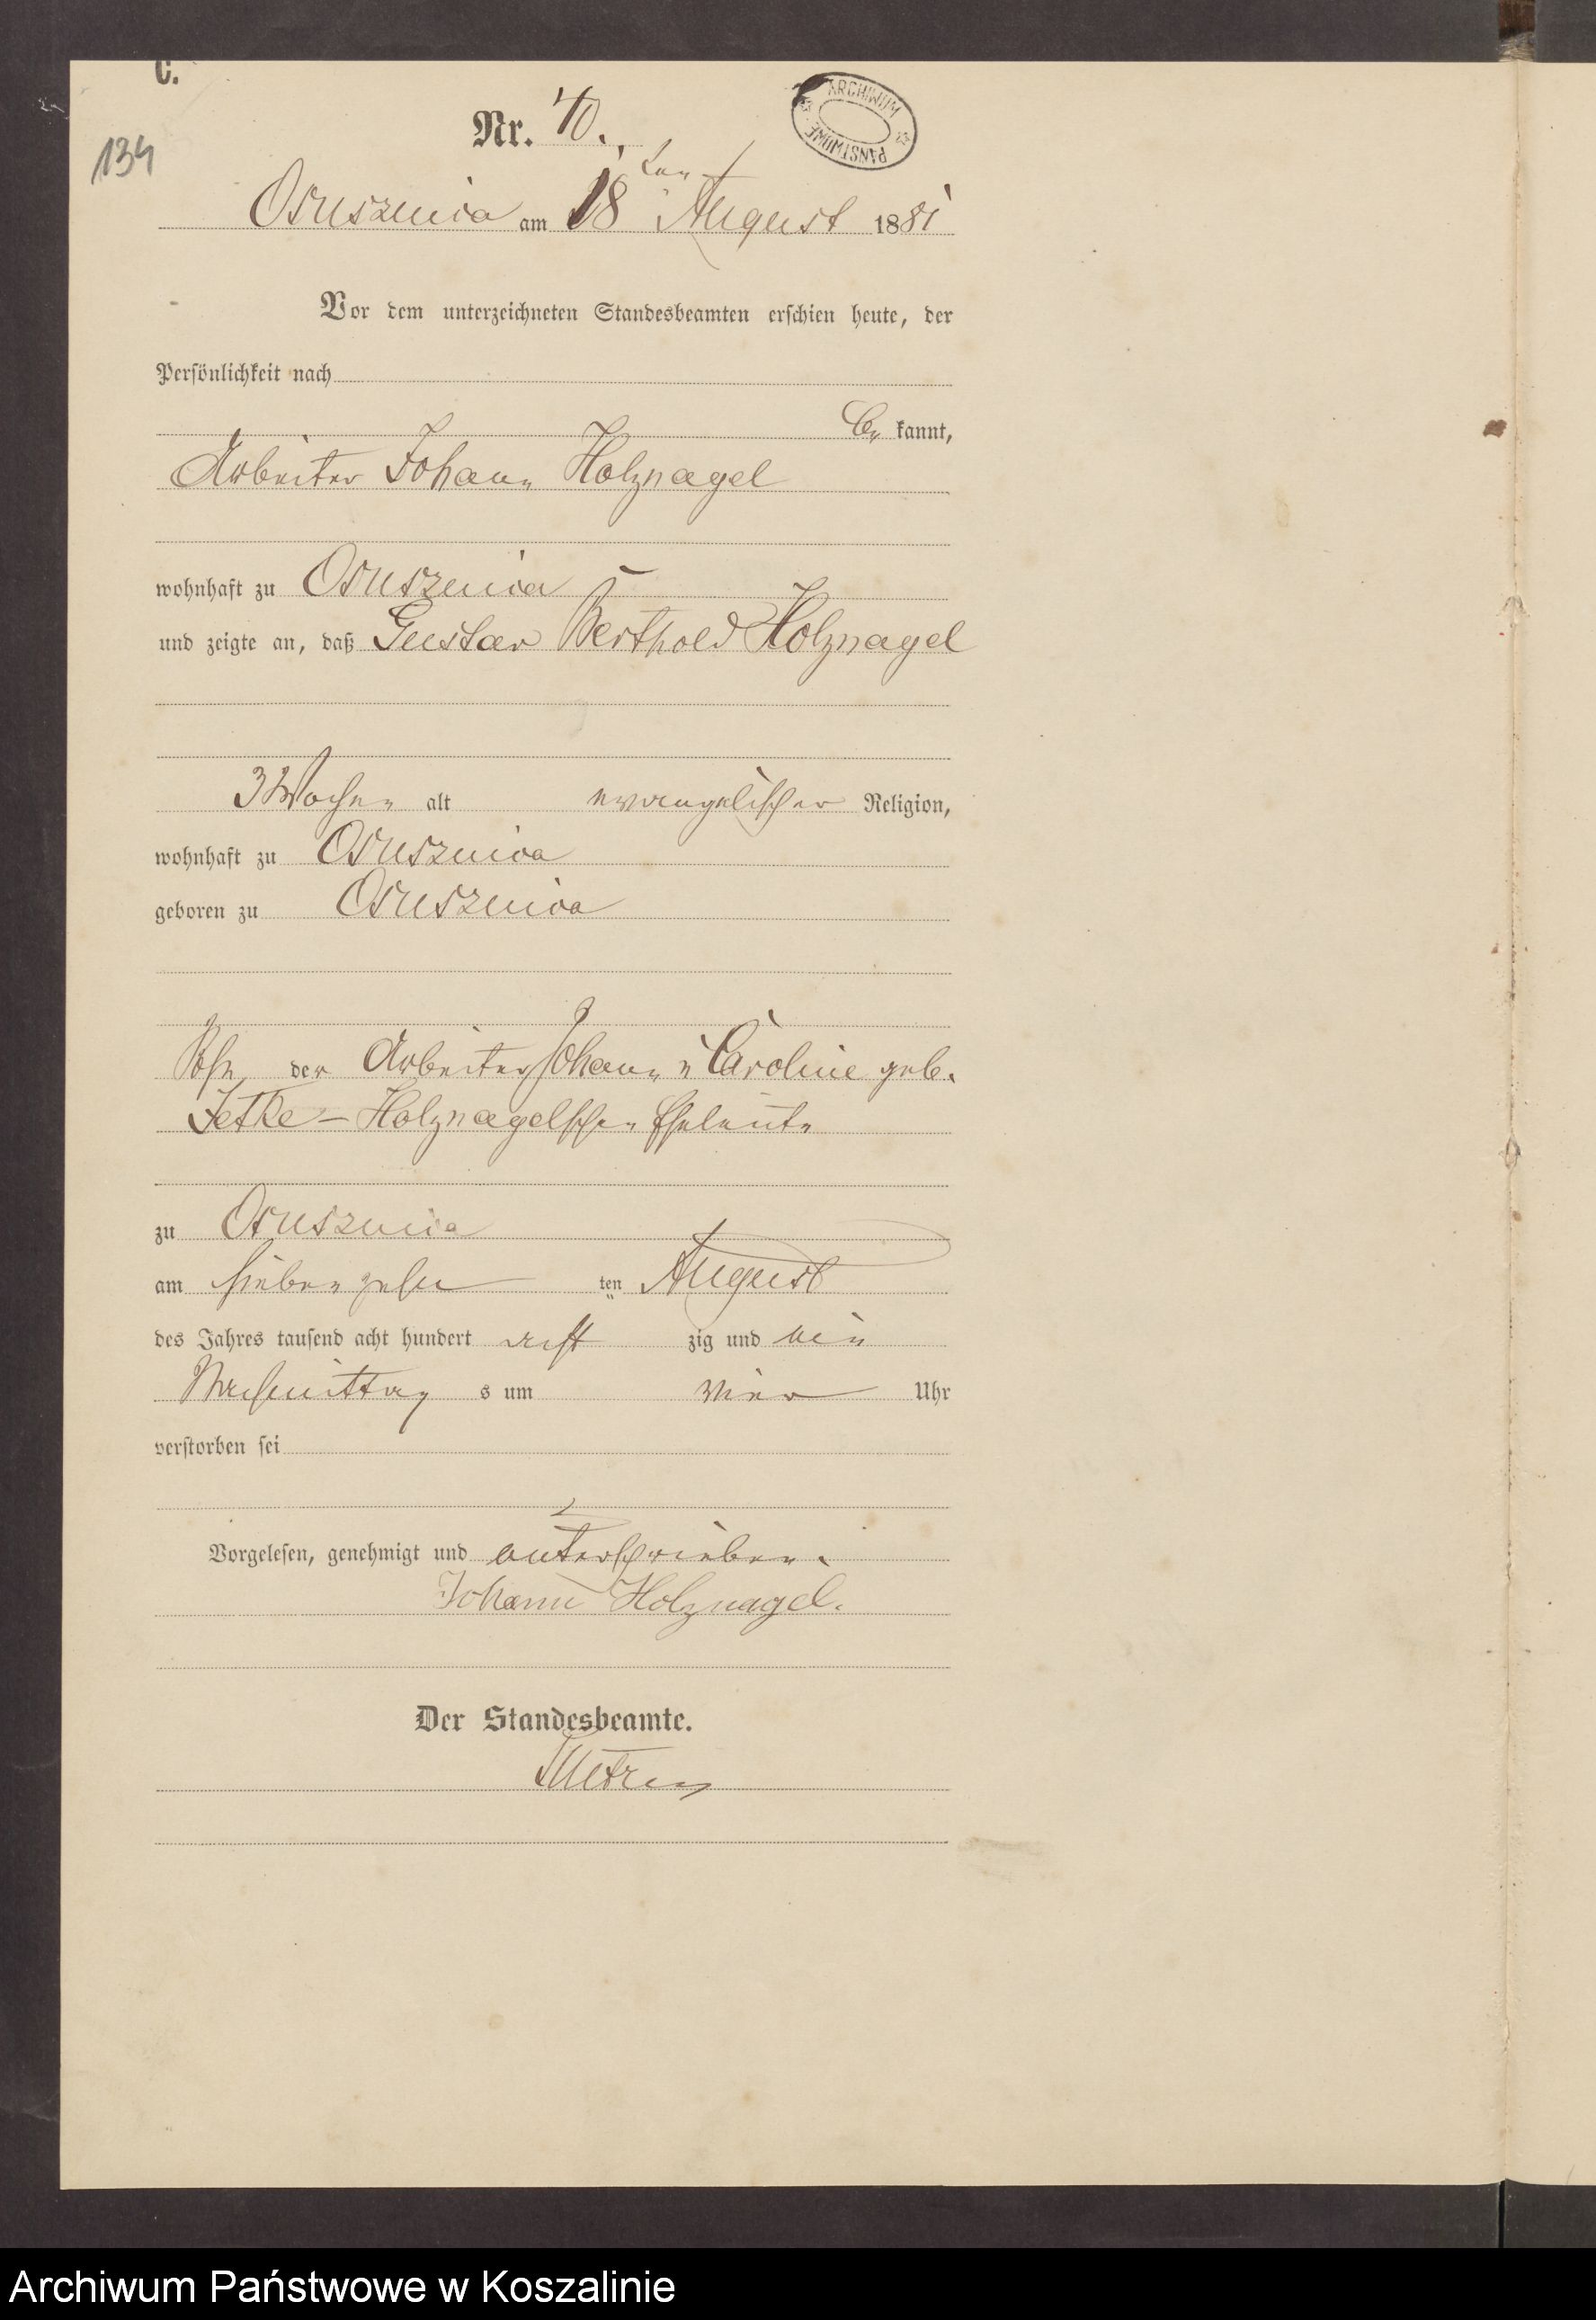 C.
134
Nr. 40.
ARCHIWUM PAŃSTWOWE
Osusznica am 18ten August 1881
Vor dem unterzeichneten Standesbeamten erschien heute, der
Persönlichkeit nach
be kannt,
Arbeiter Johann Holznagel
wohnhaft zu Osusznica
und zeigte an, daß Gustav Berthold Holznagel
3 Wochen alt evangelischer Religion,
wohnhaft zu Osusznica
geboren zu Osusznica
Sohn der Arbeiter Johann u Caroline geb.
Jetke-Holznagelschen Eheleute
zu Osusznica
am siebenzehn ten August
des Jahres tausend acht hundert acht zig und ein
Nachmittag s um vier Uhr
verstorben sei
Vorgelesen, genehmigt und unterschrieben.
Johann Holznagel.
Der Standesbeamte.
Archiwum Państwowe w Koszalinie